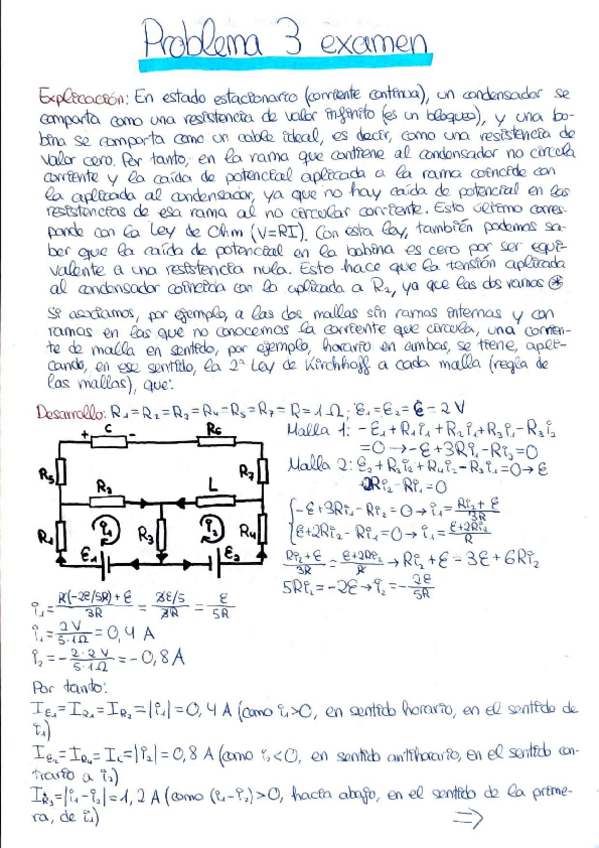 Problema 3 examen
Explicación: En estado estacionario (corriente continua), un condensador se
comporta como una resistencia de valor infinito (es un bloqueo), y una bo-
bina se comporta como un cable ideal, es decir, como una resistencia de
valor cero. Por tanto, en la rama que contiene al condensador no circula
corriente y la caída de potencial aplicada a la rama coincide con
la aplicada al condensador, ya que no hay caída de potencial en las
resistencias de esa rama al no circular corriente. Esto último corres-
ponde con la Ley de Ohm (V=RI). Con esta ley, también podemos sa-
ber que la caída de potencial en la bobina es cero por ser equi-
valente a una resistencia nula. Esto hace que la tensión aplicada
al condensador coincida con la aplicada a R₂, ya que las dos ramas ⊛
Si asociamos, por ejemplo, a las dos mallas sin ramas internas y con
ramas en las que no conocemos la corriente que circula, una corrien-
te de malla en sentido, por ejemplo, horario en ambas, se tiene, apli-
cando, en ese sentido, la 2ª Ley de Kirchhoff a cada malla (regla de
las mallas), que:
Desarrollo: R₁=R₂=R₃=R₄=R₅=R₇=R=1Ω; ε₁=ε₂=ε=2V
+ C - R₆
R₅ R₇
R₂ L
R₁ i₁ R₃ i₂ R₄
ε₁ ε₂
Malla 1: -ε₁+R₁i₁+R₂i₁+R₃i₁-R₃i₂
=0→-ε+3Ri₁-Ri₂=0
Malla 2: ε₂+R₃i₂+R₄i₂-R₃i₁=0→ε
2Ri₂-Ri₁=0
{-ε+3Ri₁-Ri₂=0→i₁=(Ri₂+ε)/3R
{ε+2Ri₂-Ri₁=0→i₁=(ε+2Ri₂)/R
(Ri₂+ε)/3R=(ε+2Ri₂)/R→Ri₂+ε=3ε+6Ri₂
5Ri₂=-2ε→i₂=-2ε/5R
i₁=(R(-2ε/5R)+ε)/3R=(3ε/5)/3R=ε/5R
i₁=2V/(5·1Ω)=0,4A
i₂=-(2·2V)/(5·1Ω)=-0,8A
Por tanto:
Iε₁=IR₁=IR₂=|i₁|=0,4A (como i₁>0, en sentido horario, en el sentido de
i₁)
Iε₂=IR₄=I_L=|i₂|=0,8A (como i₂<0, en sentido antihorario, en el sentido con-
trario a i₂)
IR₃=|i₁-i₂|=1,2A (como (i₁-i₂)>0, hacia abajo, en el sentido de la prime-
ra, de i₁)
⇒